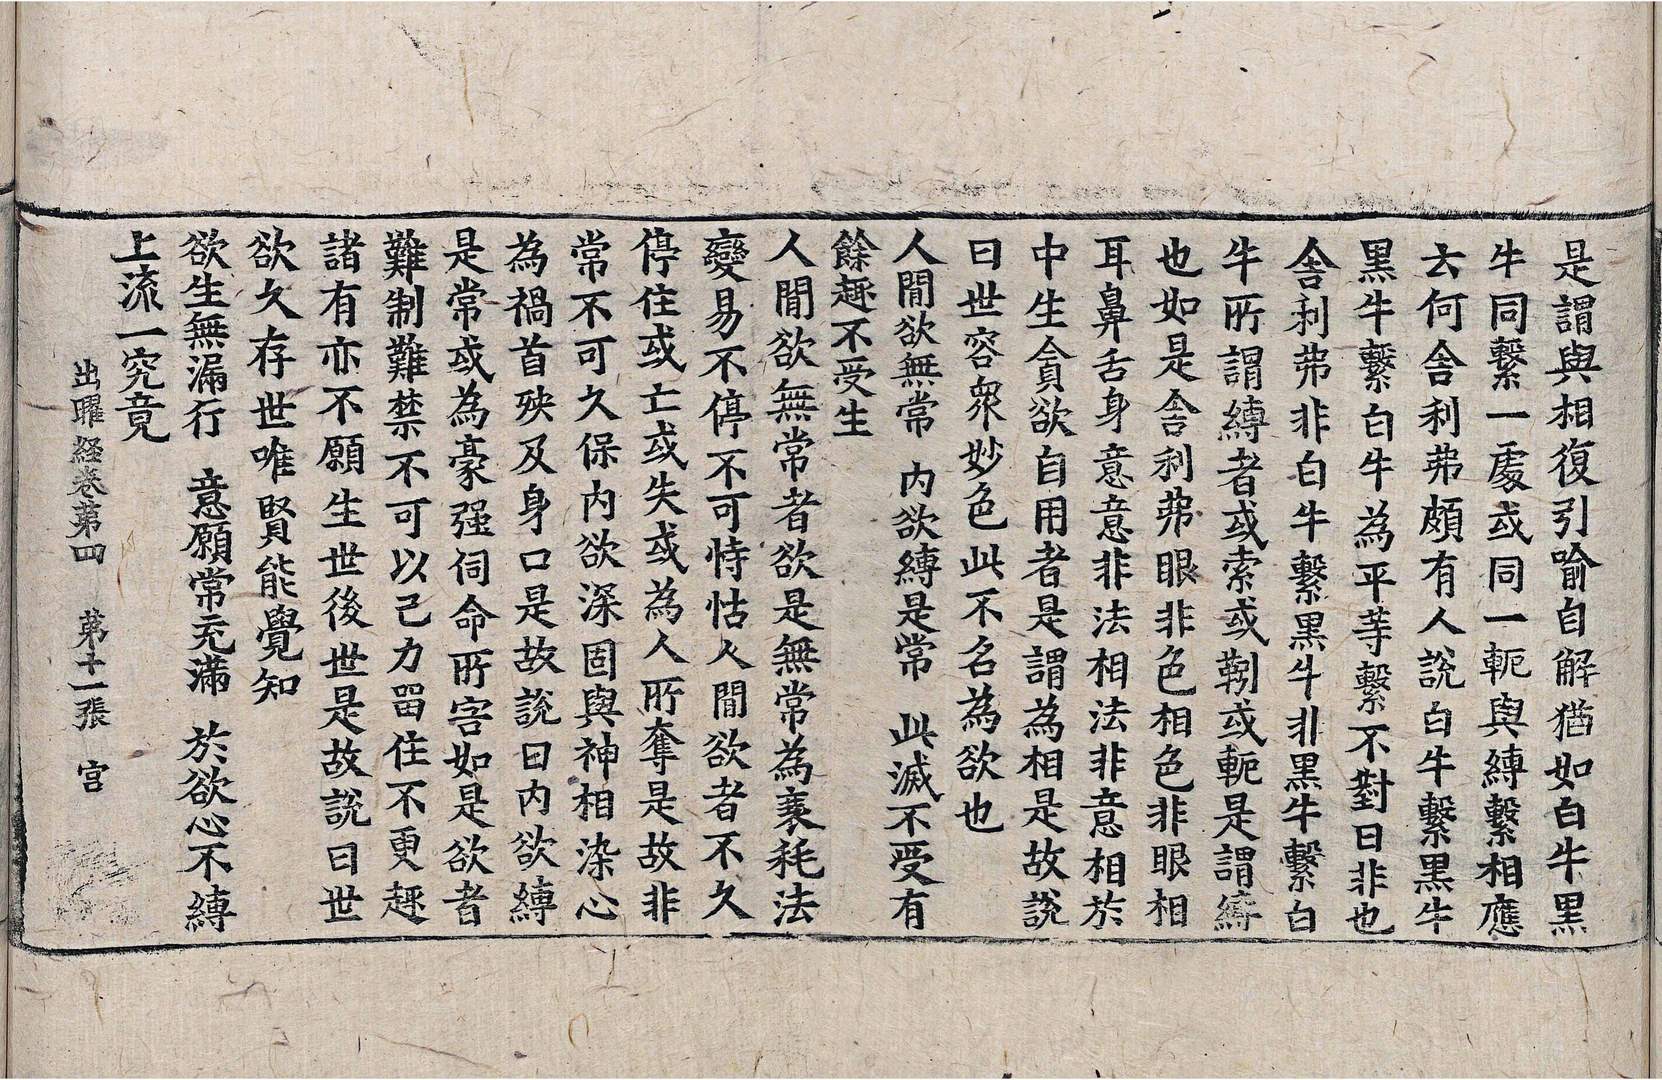 是謂與相復引喻自解猶如白牛黑
牛同繫一處或同一軛與縛繫相應
云何舍利弗頗有人說白牛繫黑牛
黑牛繫白牛為平等繫不對曰非也
舍利弗非白牛繫黑牛非黑牛繫白
牛所謂縛者或索或靷或軛是謂縛
也如是舍利弗眼非色相色非眼相
耳鼻舌身意意非法相法非意相於
中生貪欲自用者是謂為相是故說
曰世容衆妙色此不名為欲也
人閒欲無常　內欲縛是常　此滅不受有
餘趣不受生
人閒欲無常者欲是無常為衰秏法
變易不停不可恃怙人閒欲者不久
停住或亡或失或為人所奪是故非
常不可久保內欲深固與神相染心
為禍首殃及身口是故說曰內欲縛
是常或為豪强伺命所害如是欲者
難制難禁不可以己力畱住不更趣
諸有亦不願生世後世是故說曰世
欲久存世唯賢能覺知
欲生無漏行　意願常充滿　於欲心不縛
上流一究竟
出曜経卷苐四　苐十一張　宫